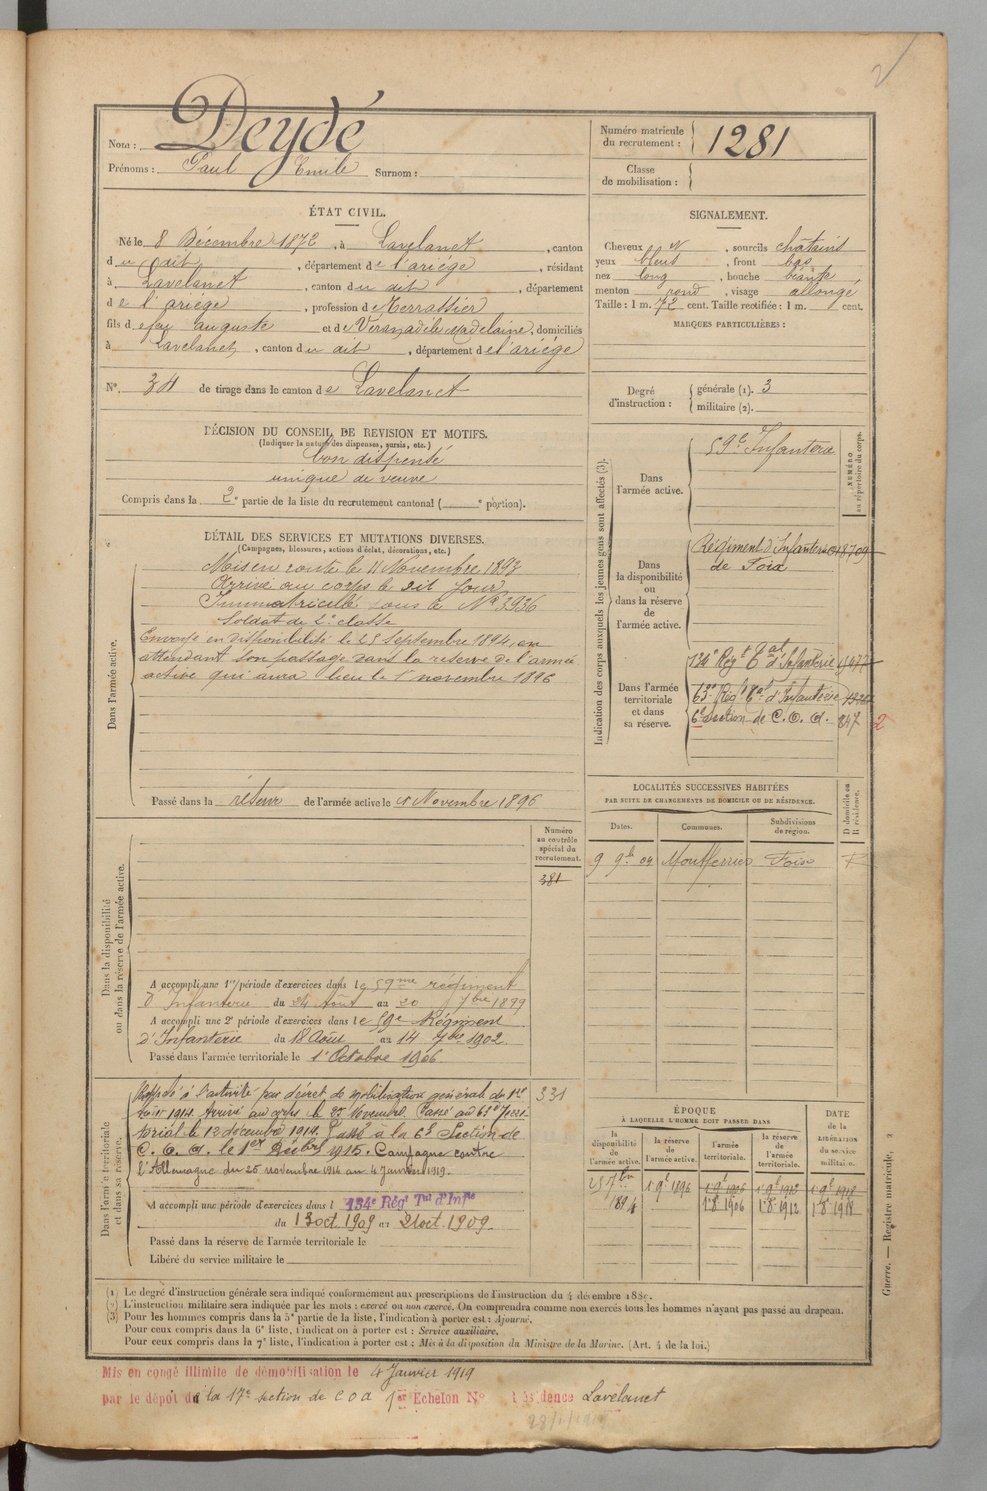 2
Nom : Deydé
Prénoms : Paul Emile Surnom :
Numéro matricule du recrutement : 1281
Classe de mobilisation :
ÉTAT CIVIL.
Né le 8 Décembre 1872, à Lavelanet, canton
du dit, département de l'ariége, résidant
à Lavelanet, canton du dit, département
de l'ariége, profession de Terrassier
fils de feu auguste et de Madelaine, domiciliés
à Lavelanet, canton du dit, département de l'ariége
N° 34 de tirage dans le canton de Lavelanet
SIGNALEMENT.
Cheveux et N, sourcils chatains
yeux bleus, front bas
nez long, bouche béante
menton rond, visage allongé
Taille : 1 m. 72 cent. Taille rectifiée : 1 m. cent.
MARQUES PARTICULIÈRES :
Degré d'instruction : générale (1). 3
militaire (2).
DÉCISION DU CONSEIL DE REVISION ET MOTIFS.
(Indiquer la nature des dispenses, sursis, etc.)
bon dispensé
unique de veuve
Compris dans la 2e partie de la liste du recrutement cantonal ( e portion).
DÉTAIL DES SERVICES ET MUTATIONS DIVERSES.
(Campagnes, blessures, actions d'éclat, décorations, etc.)
Dans l'armée active.
Mis en route le 11 Novembre 1893
Arrivé au corps le dit jour
Immatriculé sous le N° 3936
Soldat de 2e classe
Envoyé en disponibilité le 25 Septembre 1894, en
attendant son passage dans la réserve de l'armée
active qui aura lieu le 1er novembre 1896
Passé dans la réserve de l'armée active le 1er Novembre 1896
Indication des corps auxquels les jeunes gens sont affectés (3).
NUMÉRO au répertoire du corps.
Dans l'armée active.
59e Infanterie
Dans la disponibilité ou dans la réserve de l'armée active.
Régiment d'Infanterie 018709
de Foix
Dans l'armée territoriale et dans sa réserve.
134e Régt Tal d'Infanterie
63e Régt Tal d'Infanterie
6e Section de C. O. A. 847 2
LOCALITÉS SUCCESSIVES HABITÉES
PAR SUITE DE CHANGEMENTS DE DOMICILE OU DE RÉSIDENCE.
Dates. Communes. Subdivisions de région. D domicile ou R résidence.
9 9bre 04 Montferrier Foix R
Dans la disponibilité ou dans la réserve de l'armée active.
Numéro au contrôle spécial du recrutement.
381
A accompli une 1re période d'exercices dans le 59me régiment
d'Infanterie du 24 Août au 20 7bre 1899
A accompli une 2e période d'exercices dans le 59e Régiment
d'Infanterie du 18 Août au 14 7bre 1902.
Passé dans l'armée territoriale le 1er Octobre 1906
Dans l'armée territoriale et dans sa réserve.
331
Rappelé à l'activité par décret de mobilisation générale du 1er
Août 1914. Arrivé au corps le 25 Novembre. Passé au 63e Terri-
torial le 12 décembre 1914. Passé à la 6e Section de
C. O. A. le 1er 1915. Campagne contre
l'Allemagne du 25 novembre 1914 au 4 Janvier 1919.
A accompli une période d'exercices dans l 134e Régt Tal d'Infie
du 13 oct. 1909 au 21 oct. 1909.
Passé dans la réserve de l'armée territoriale le
Libéré du service militaire le
ÉPOQUE
À LAQUELLE L'HOMME DOIT PASSER DANS
la disponibilité de l'armée active. la réserve de l'armée active. l'armée territoriale. la réserve de l'armée territoriale. DATE de la LIBÉRATION du service militaire.
25 7bre 1894 1er 9bre 1896 1er 9bre 1906 1er 9bre 1912 1er 9bre 1918
1er 8bre 1906 1er 8bre 1912 1er 8bre 1918
Guerre. — Registre matricule, 2
(1) Le degré d'instruction générale sera indiqué conformément aux prescriptions de l'instruction du 4 décembre 1889.
(2) L'instruction militaire sera indiquée par les mots : exercé ou non exercé. On comprendra comme non exercés tous les hommes n'ayant pas passé au drapeau.
(3) Pour les hommes compris dans la 5e partie de la liste, l'indication à porter est : Ajourné.
Pour ceux compris dans la 6e liste, l'indication à porter est : Service auxiliaire.
Pour ceux compris dans la 7e liste, l'indication à porter est : Mis à la disposition du Ministre de la Marine. (Art. 4 de la loi.)
Mis en congé illimité de démobilisation le 4 Janvier 1919
par le dépôt de la 17e section de C O A 1er Echelon N° Résidence Lavelanet